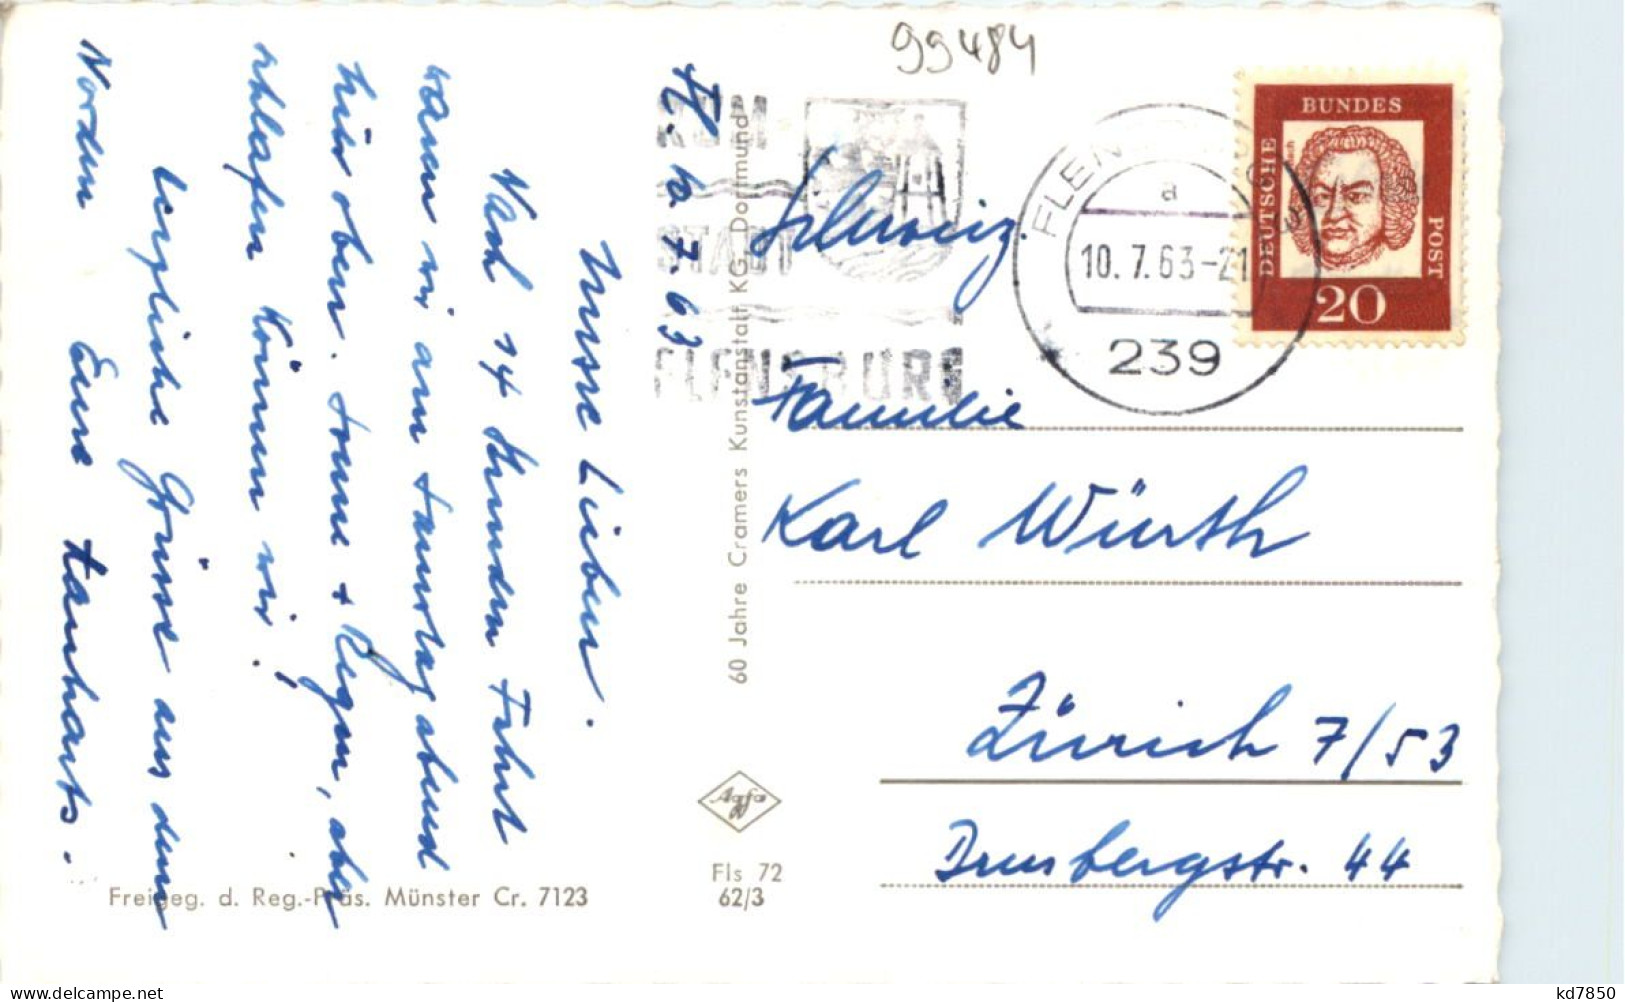 99484
Fl. 10.7.63
Unsre Lieben.
Nach 14 Stunden Fahrt
waren wir am Samstag abend
hier oben. Sonne + Regen, aber
schlafen können wir!
Herzliche Grüsse aus dem
Norden Eure
KOM
STADT
FLENSBURG
FLEN
a
10.7.63-21
239
BUNDES
DEUTSCHE
POST
20
Schweiz.
Familie
Karl Würth
Zürich 7/53
44
60 Jahre Cramers Kunstanstalt KG, Dortmund
Agfa
Fls 72
62/3
Freigeg. d. Reg.-Präs. Münster Cr. 7123
kd7850